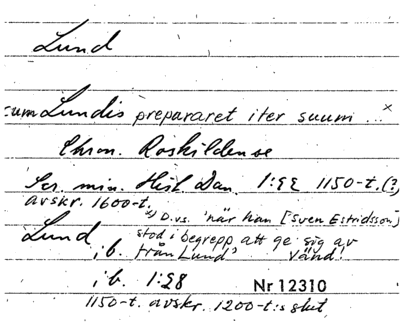 Lund
cum Lundis prepararet iter suum ... x
Chron. Roskildense
Scr. min. Hist. Dan. 1:22 1150-t. (?)
avskr. 1600-t.
x) D.v.s. 'när han [Sven Estridsson]
stod i begrepp att ge sig av
Lund från Lund'
i b. 1:28
Nr 12310
1150-t. avskr. 1200-t:s slut